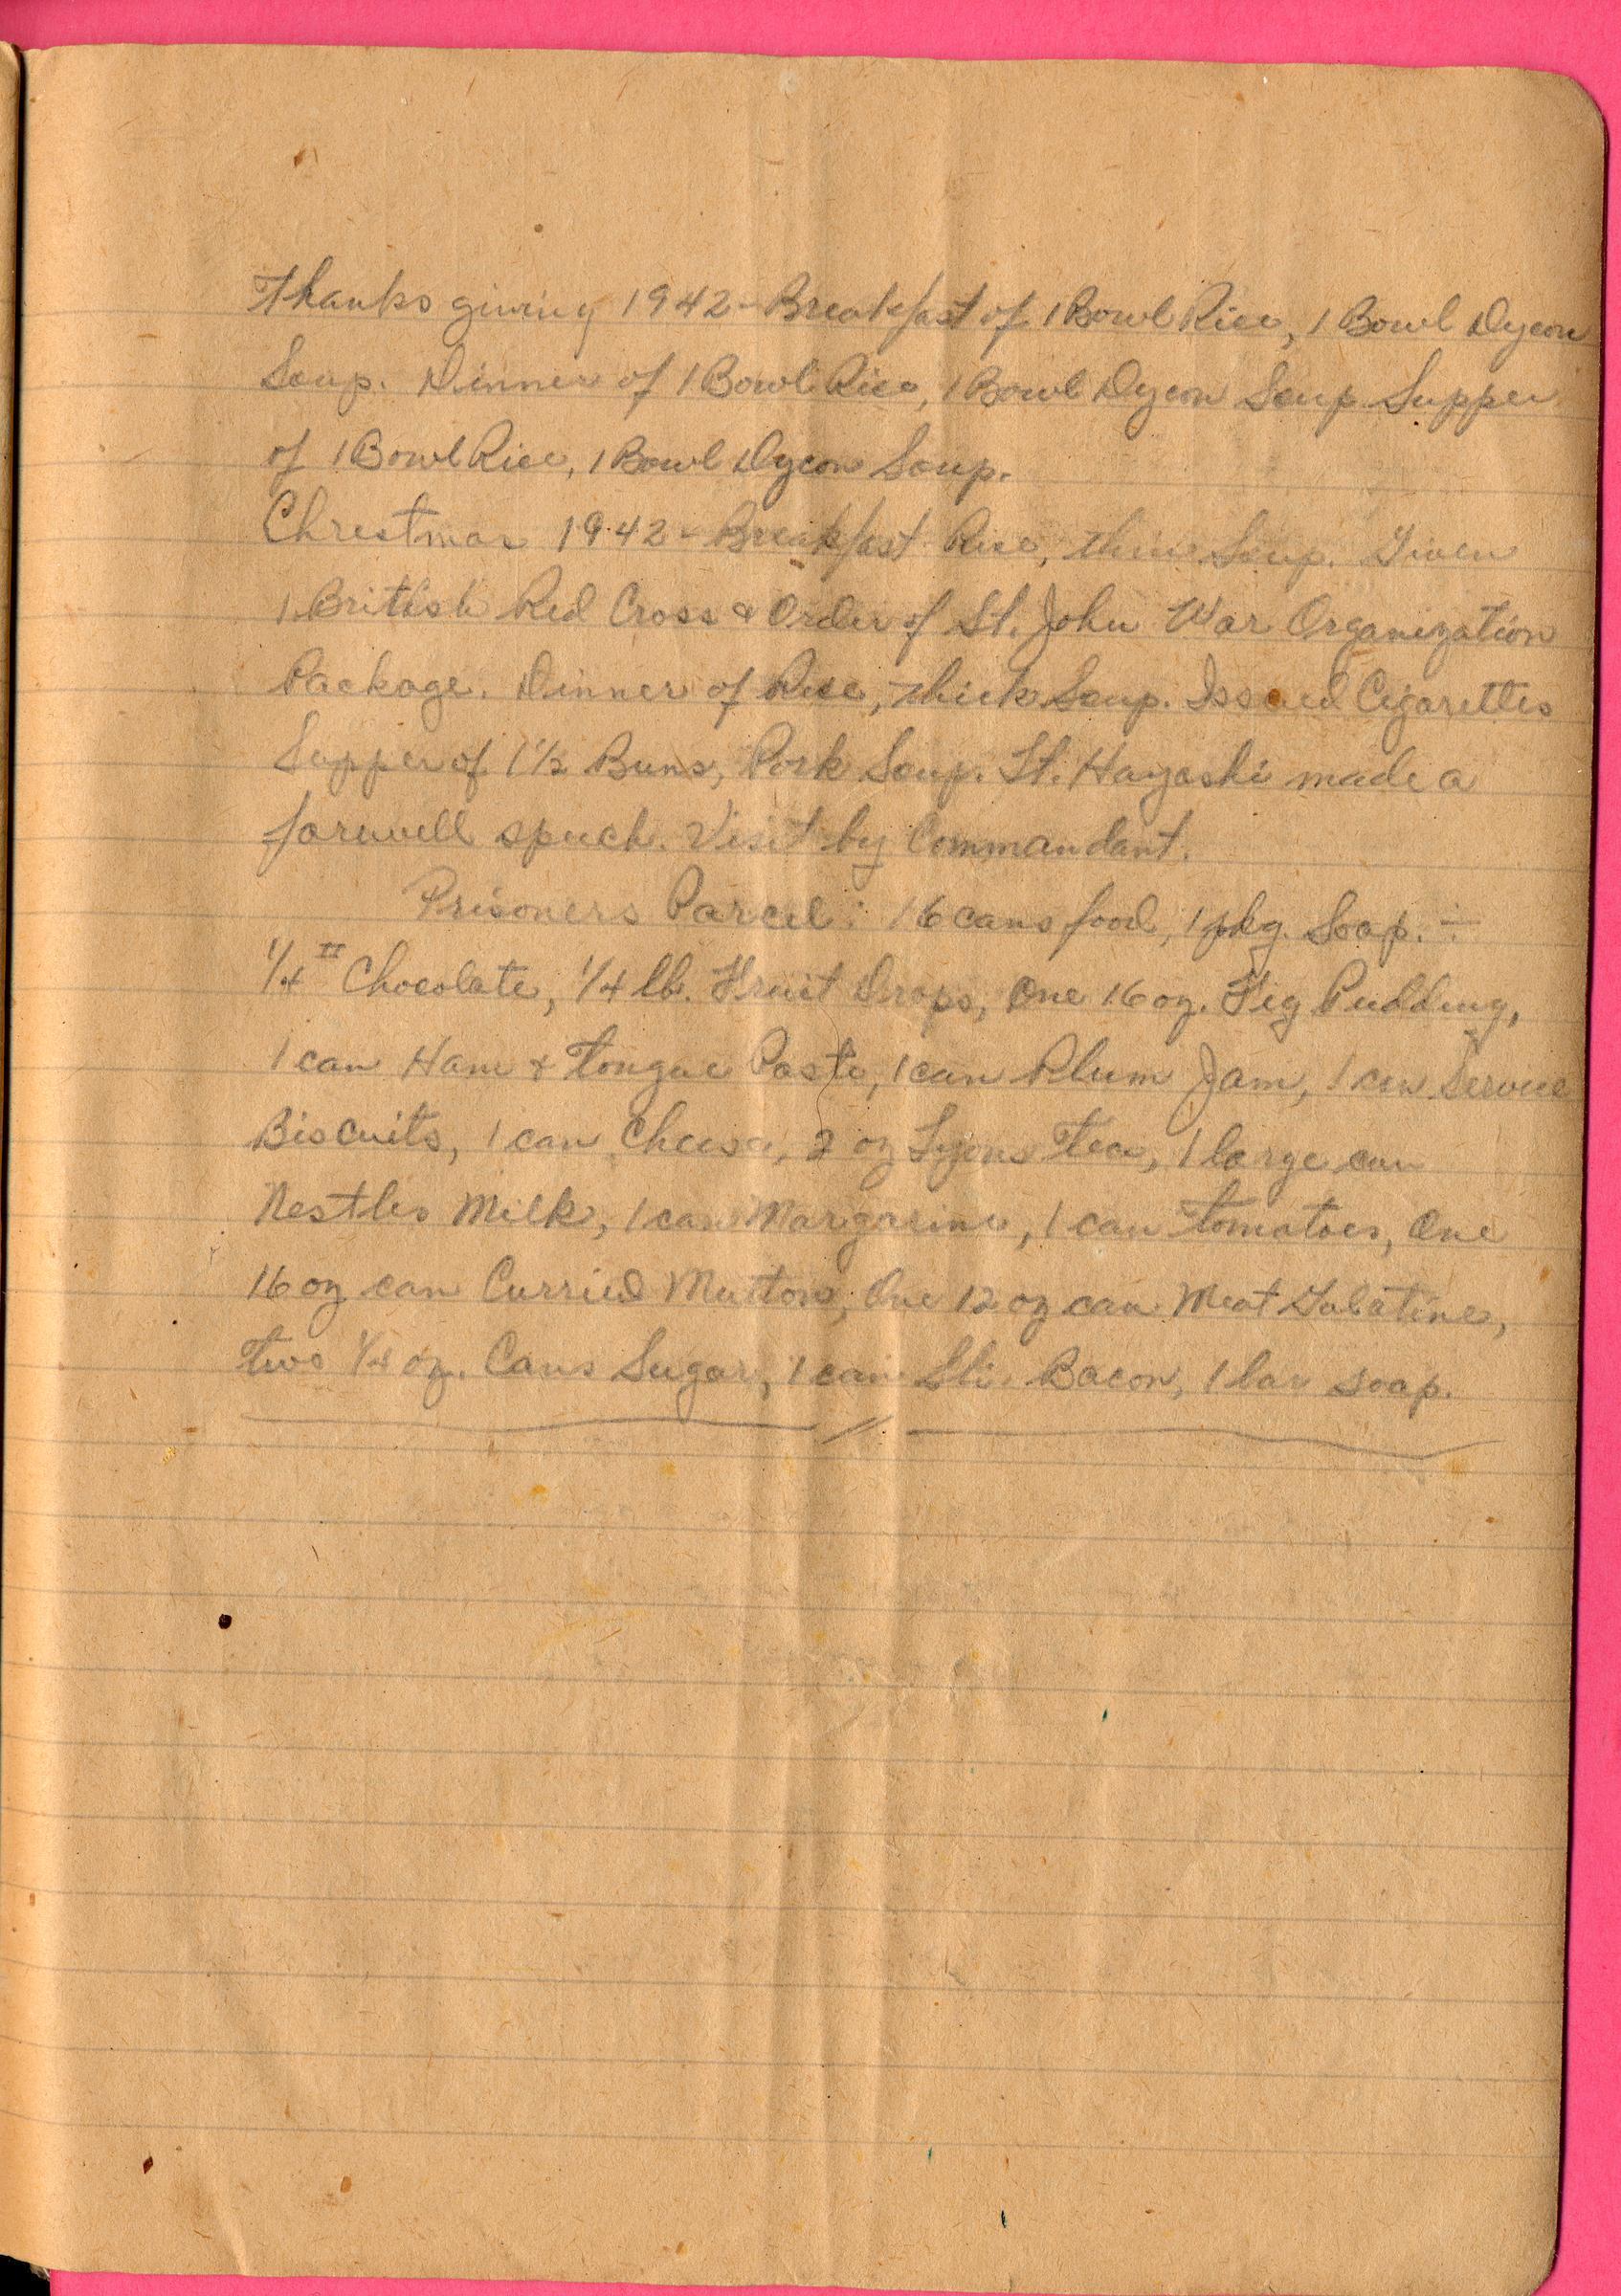 Thanksgiving 1942 - Breakfast of 1 Bowl Rice, 1 Bowl Dycon
Soup. Dinner of 1 Bowl Rice, 1 Bowl Dycon Soup Supper
of 1 Bowl Rice, 1 Bowl Dycon Soup.
Christmas 1942 - Breakfast Rice, thin Soup. Given
1 British Red Cross & Order of St. John War Organization
Package. Dinner of Rice, thick Soup. Issued Cigarettes
Supper of 1 1/2 Buns, Pork Soup. Lt. Hayashi made a
farewell speech. Visit by Commandant.
Prisoners Parcel: 16 cans food, 1 pkg. Soap. ÷
1/4 Chocolate, 1/4 lb. Fruit Drops, One 16 oz. Fig Pudding,
1 can Ham & Tongue Paste, 1 can Plum Jam, 1 can Service
Biscuits, 1 can Cheese, 2 oz Lyons Tea, 1 large can
Nestles Milk, 1 can Margarine, 1 can tomatoes, One
16 oz can Curried Mutton, One 12 oz can Meat Galatine,
two 1/4 oz. Cans Sugar, 1 can Sli. Bacon, 1 bar soap.